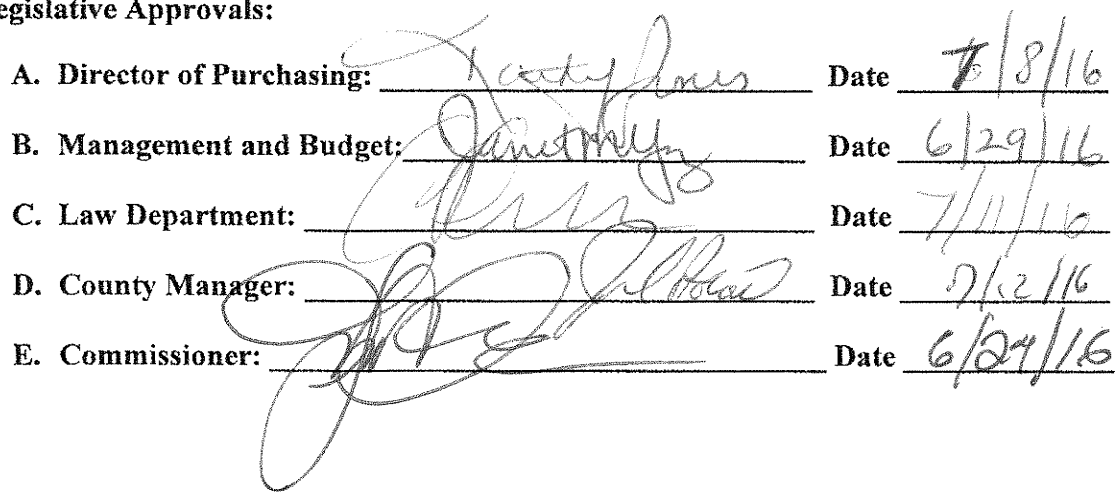 egislative Approvals:
A. Director of Purchasing: Date 7/8/16
B. Management and Budget: Date 6/29/16
C. Law Department: Date 7/11/16
D. County Manager: Date 7/12/16
E. Commissioner: Date 6/24/16